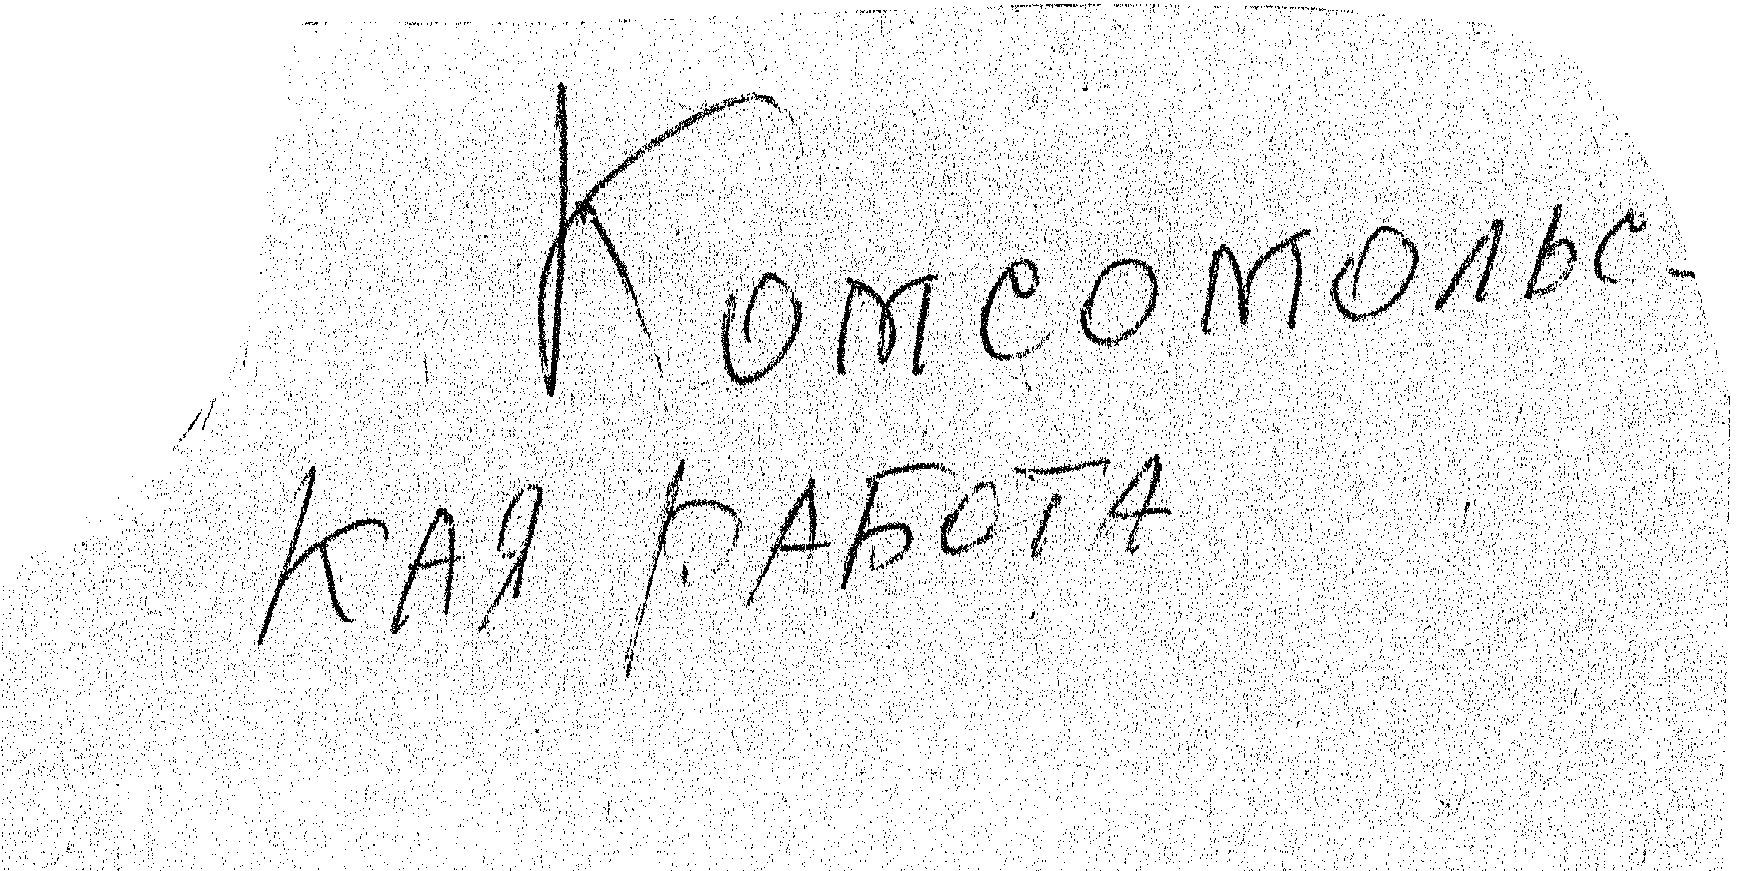 Комсомольс-
кая работа